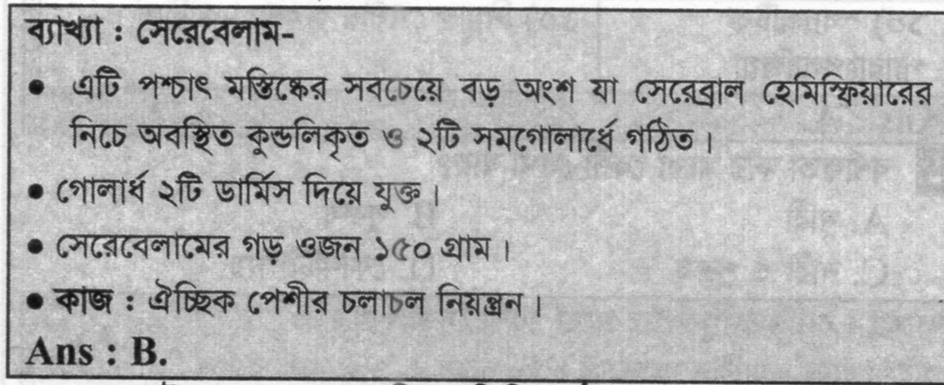 ব্যাখ্যা : সেরেবেলাম-
• এটি পশ্চাৎ মস্তিষ্কের সবচেয়ে বড় অংশ যা সেরেব্রাল হেমিস্ফিয়ারের
নিচে অবস্থিত কুন্ডলিকৃত ও ২টি সমগোলার্ধে গঠিত।
• গোলার্ধ ২টি ডার্মিস দিয়ে যুক্ত।
• সেরেবেলামের গড় ওজন ১৫০ গ্রাম।
• কাজ : ঐচ্ছিক পেশীর চলাচল নিয়ন্ত্রন।
Ans : B.